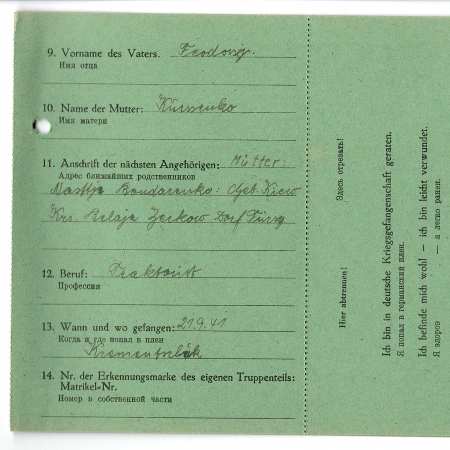 9. Vorname des Vaters. Feodorgr.
Имя отца
10. Name der Mutter: Kurssenko
Имя матери
11. Anschrift der nächsten Angehörigen: Mutter:
Адрес ближайших родственников
Nastja Bondarenko: Geb. Kiew
Krs. Belaja Zerkow Dorf
12. Beruf: Traktorist
Профессия
13. Wann und wo gefangen: 21.9.41
Когда и где попал в плен
Krementschuk
14. Nr. der Erkennungsmarke des eigenen Truppenteils:
Matrikel-Nr.
Номер в собственной части
Hier abtrennen! Здесь отрезать!
Ich bin in deutsche Kriegsgefangenschaft geraten.
Я попал в германский плен.
Ich befinde mich wohl — ich bin leicht verwundet.
Я здоров — я легко ранен.